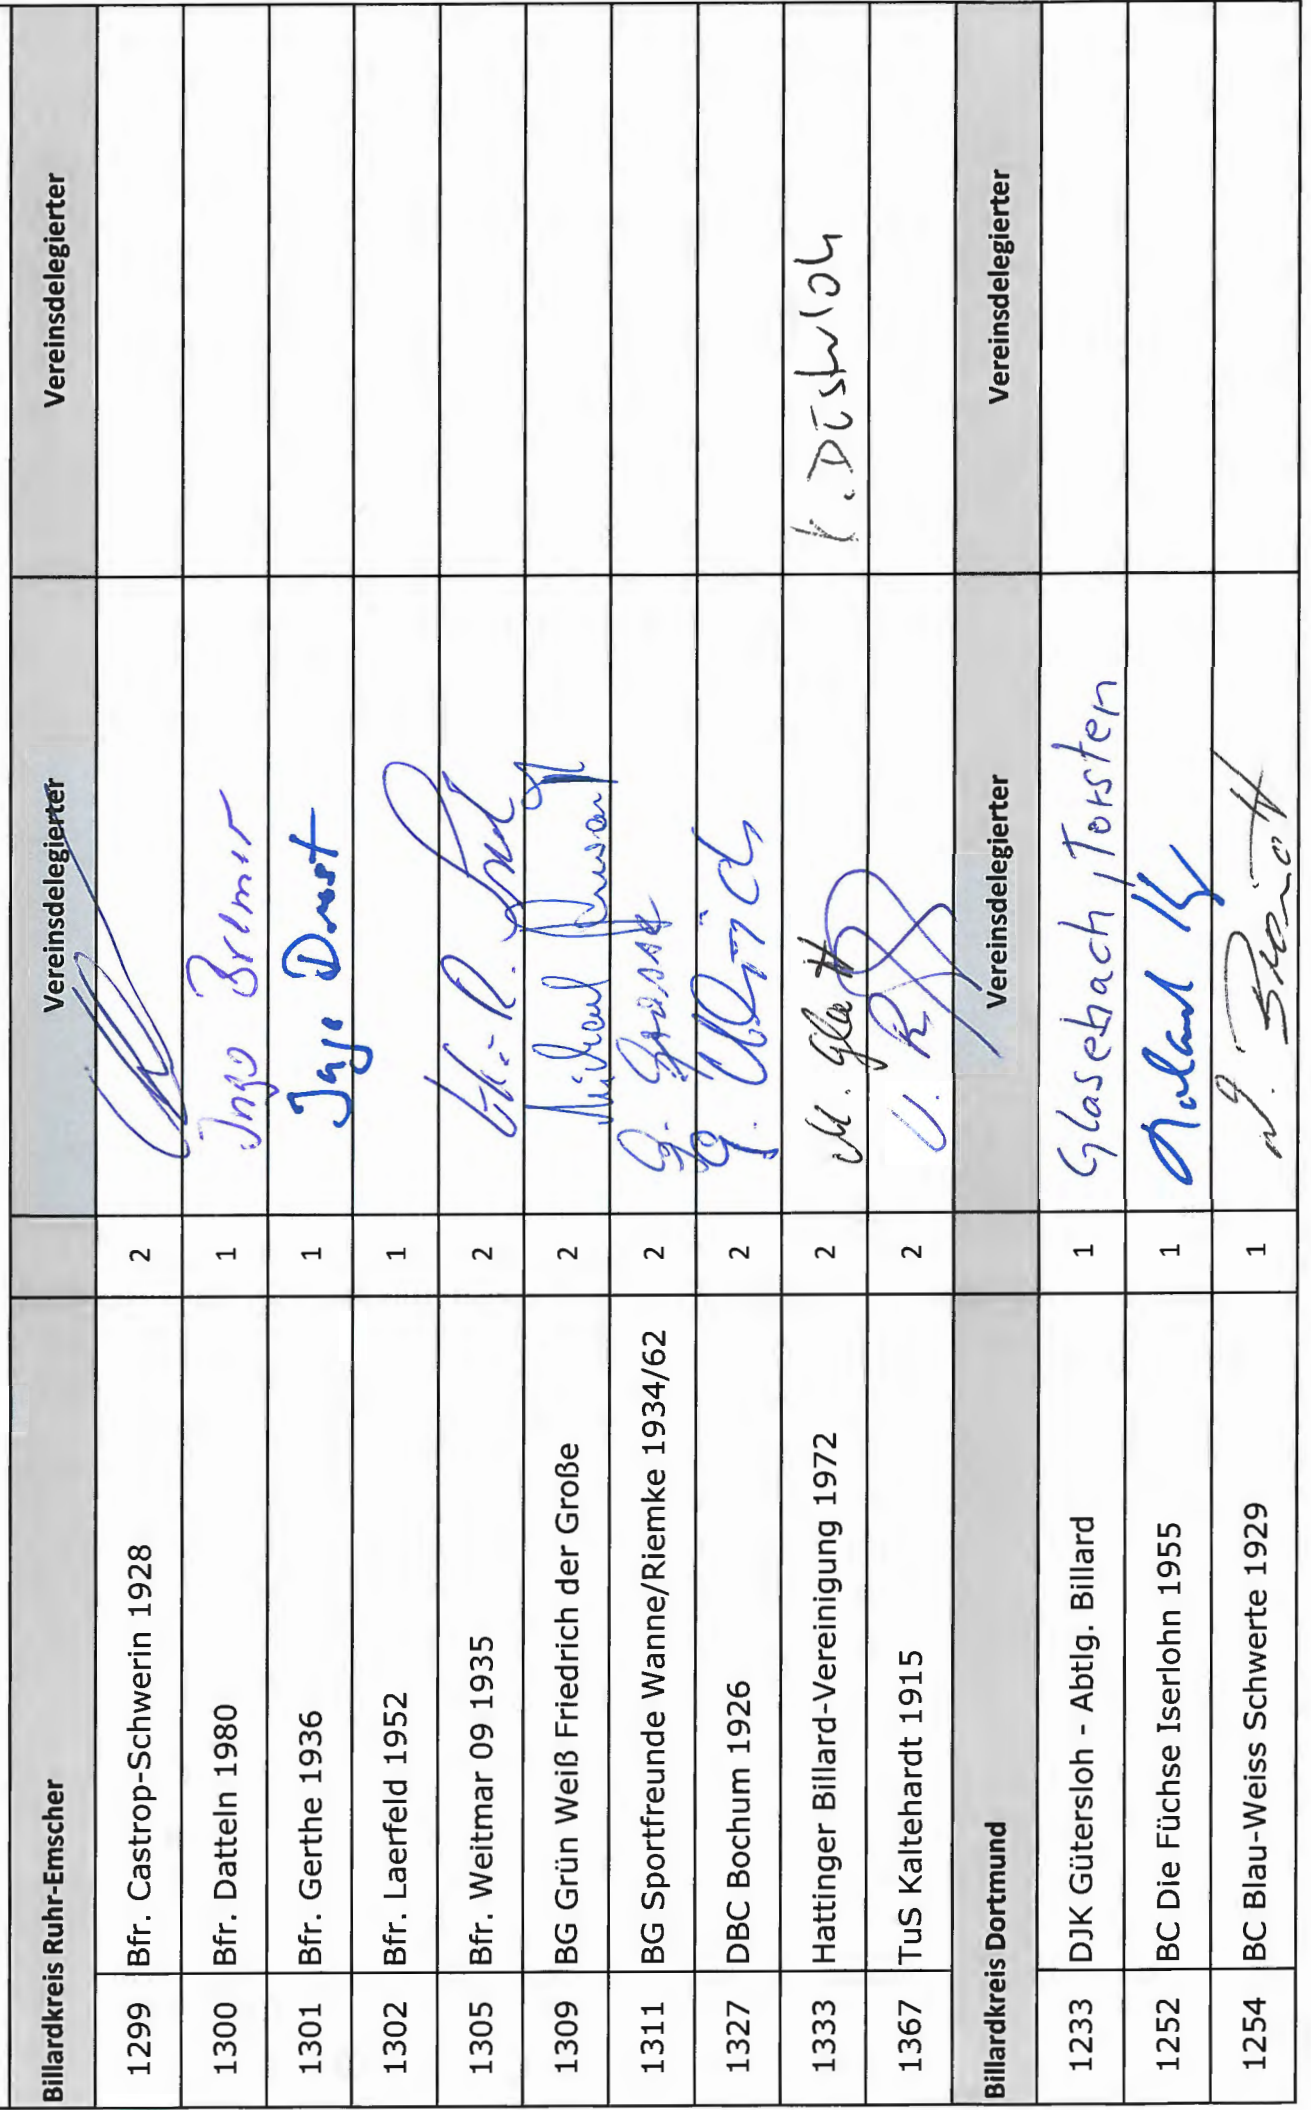 Billardkreis Ruhr-Emscher Vereinsdelegierter Vereinsdelegierter
1299 Bfr. Castrop-Schwerin 1928 2
1300 Bfr. Datteln 1980 1 Ingo Brelmer
1301 Bfr. Gerthe 1936 1 Ingo Drost
1302 Bfr. Laerfeld 1952 1
1305 Bfr. Weitmar 09 1935 2
1309 BG Grün Weiß Friedrich der Große 2 Michael
1311 BG Sportfreunde Wanne/Riemke 1934/62 2 G. Grosse
1327 DBC Bochum 1926 2 G. Ulrich
1333 Hattinger Billard-Vereinigung 1972 2 M. Glatt
1367 TuS Kaltehardt 1915 2
Billardkreis Dortmund Vereinsdelegierter Vereinsdelegierter
1233 DJK Gütersloh - Abtlg. Billard 1 Glasebach, Torsten
1252 BC Die Füchse Iserlohn 1955 1 Roland
1254 BC Blau-Weiss Schwerte 1929 1